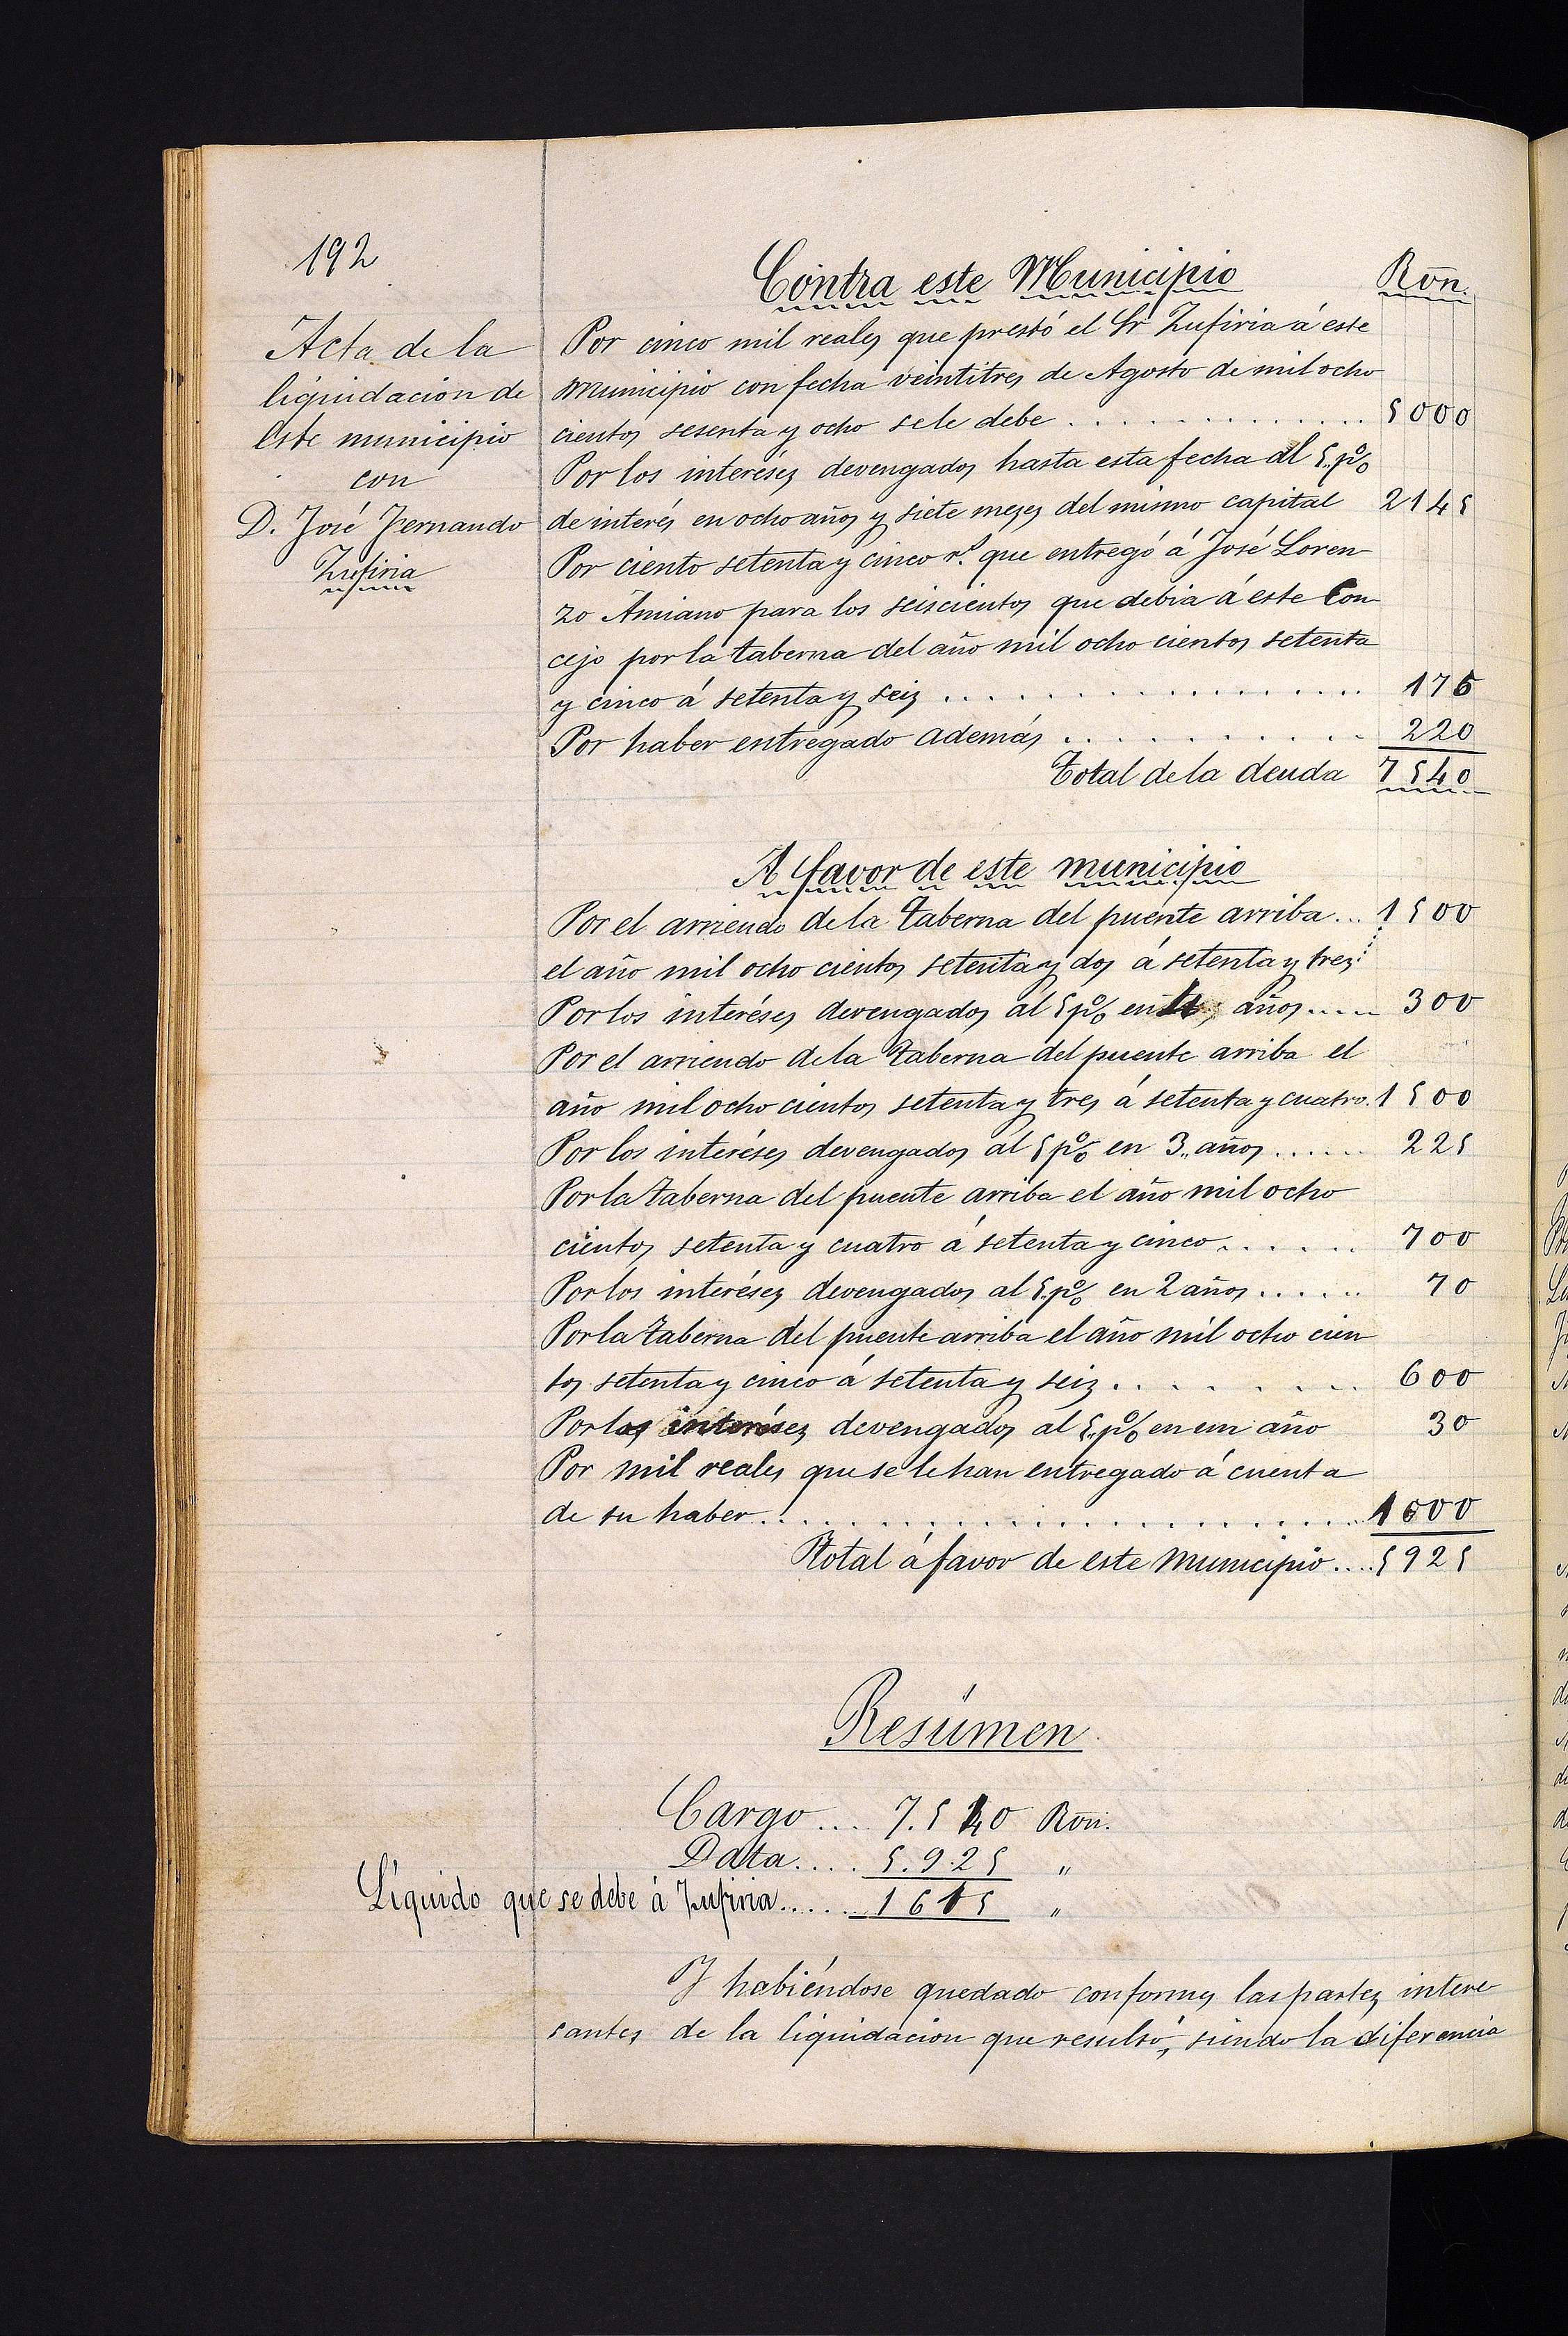 192
Acta de la
liquidación de
este municipio
con
D. José Fernando
Zufiria
Contra este Municipio Rvn.
Por cinco mil reales que prestó el Sr Zufiria á este
municipio con fecha veintitres de Agosto de mil ocho
cientos sesenta y ocho se le debe ............. 5000
Por los interéses devengados hasta esta fecha al 5 p%
de interés en ocho años y siete meses del mismo capital 2145
Por ciento setenta y cinco rs. que entregó á José Loren
zo Amiano para los seiscientos que debia á este Con
cejo por la taberna del año mil ocho cientos setenta
y cinco á setenta y seis ................. 175
Por haber entregado además ........... 220
Total de la deuda 7540
A favor de este municipio
Por el arriendo de la taberna del puente arriba... 1500
el año mil ocho cientos setenta y dos á setenta y tres
Por los interéses devengados al 5 p% en 4 años.... 300
Por el arriendo de la taberna del puente arriba el
año mil ocho cientos setenta y tres á setenta y cuatro. 1500
Por los interéses devengados al 5 p% en 3 años...... 225
Por la taberna del puente arriba el año mil ocho
cientos setenta y cuatro á setenta y cinco....... 700
Por los interéses devengados al 5 p% en 2 años...... 70
Por la taberna del puente arriba el año mil ocho cien
tos setenta y cinco á setenta y seis......... 600
Por los interéses devengados al 5 p% en un año 30
Por mil reales que se le han entregado á cuenta
de su haber...................... 1000
Total á favor de este municipio.... 5925
Resúmen
Cargo.... 7.540 Rvn.
Data..... 5.925 "
Líquido que se debe á Zufiria...... 1615 "
Y habiéndose quedado conformes las partes intere
santes de la liquidación que resultó, siendo la diferencia